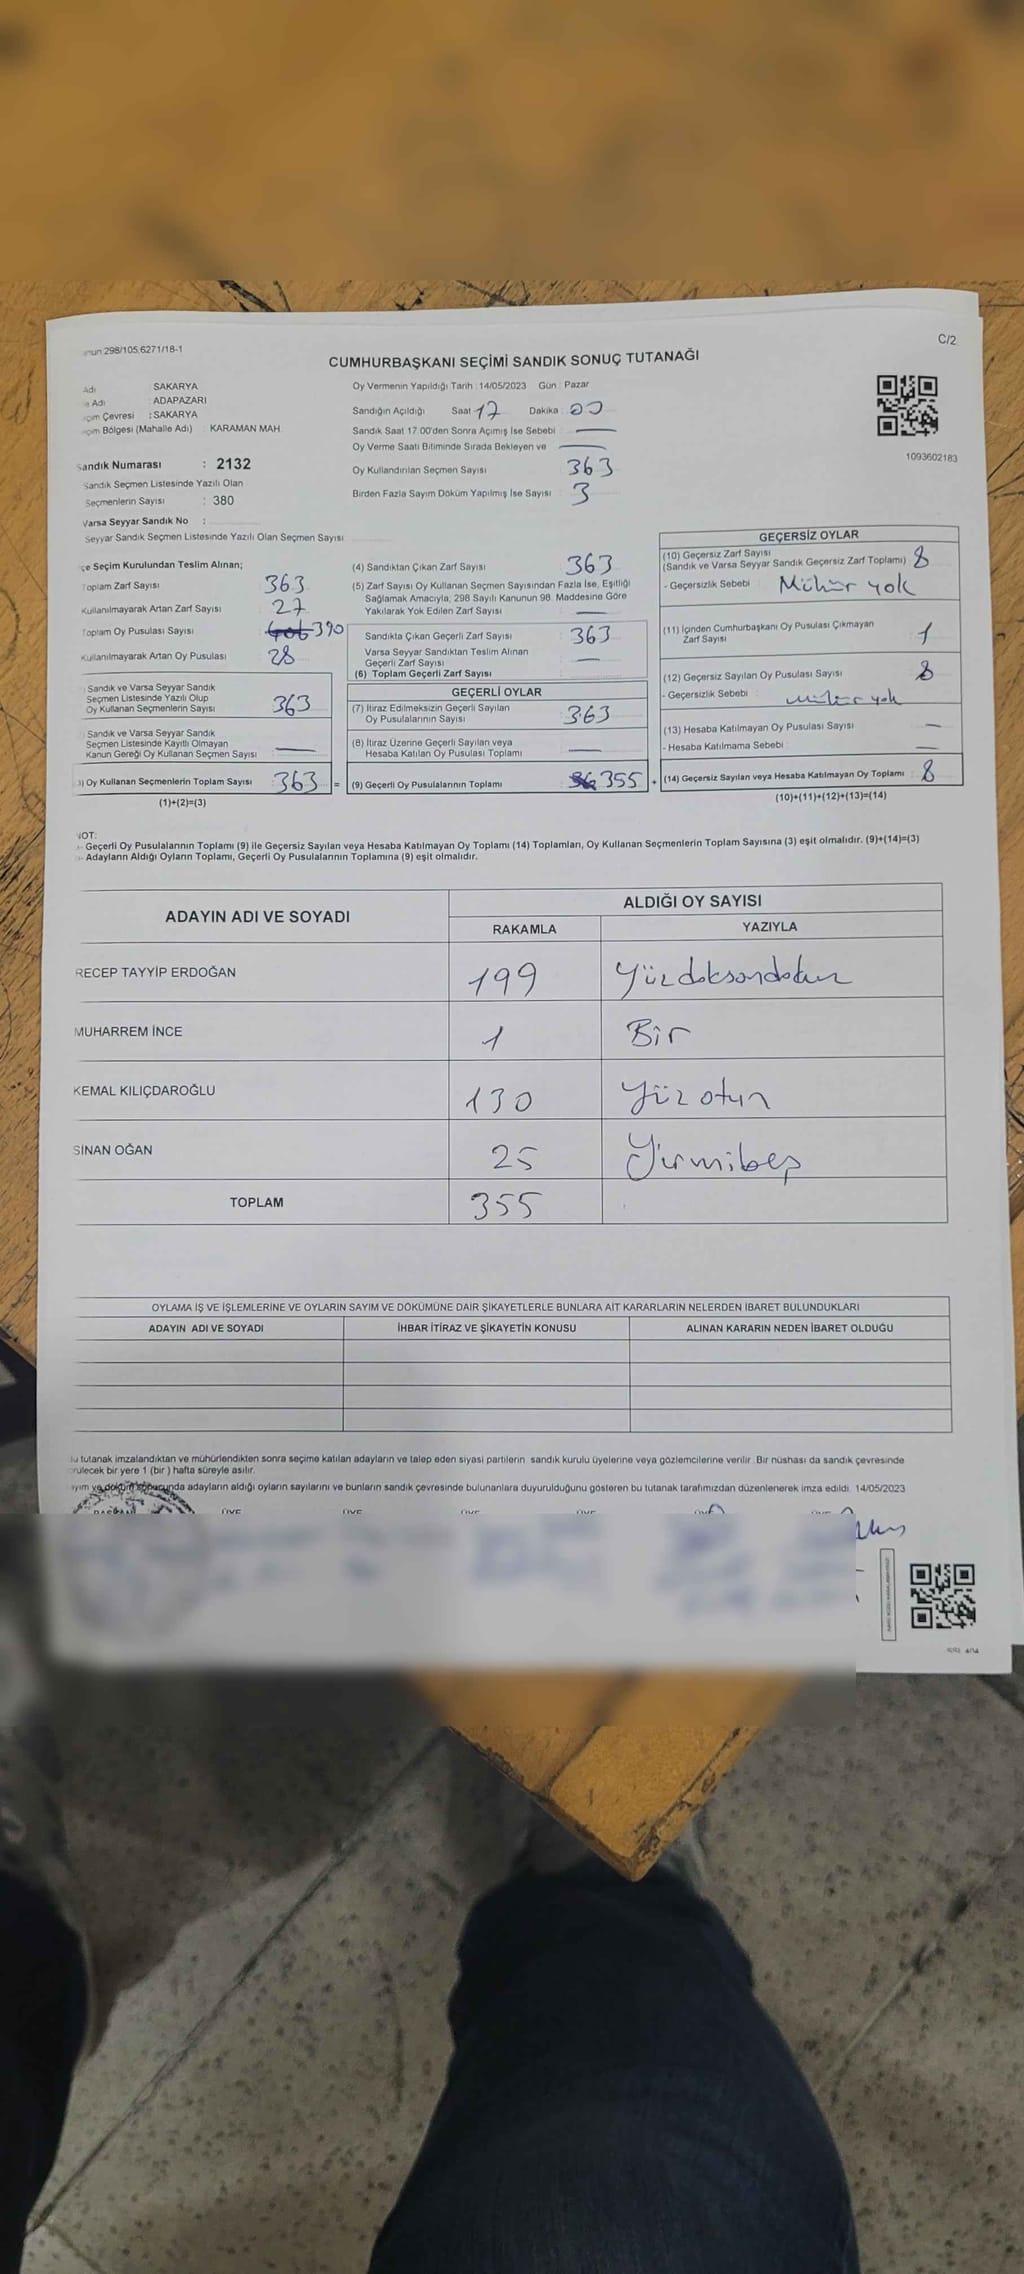 C/2
298/105,6271/18-1
CUMHURBAŞKANI SEÇİMİ SANDIK SONUÇ TUTANAĞI
Adı : SAKARYA
Adı : ADAPAZARI
Çevresi : SAKARYA
Bölgesi (Mahalle Adı) : KARAMAN MAH.
Sandık Numarası : 2132
Sandık Seçmen Listesinde Yazılı Olan
Seçmenlerin Sayısı : 380
Varsa Seyyar Sandık No :
Seyyar Sandık Seçmen Listesinde Yazılı Olan Seçmen Sayısı :
Oy Vermenin Yapıldığı Tarih : 14/05/2023 Gün : Pazar
Sandığın Açıldığı Saat 17 Dakika : 00
Sandık Saat 17.00'den Sonra Açımış İse Sebebi : —
Oy Verme Saati Bitiminde Sırada Bekleyen ve —
Oy Kullandırılan Seçmen Sayısı 363
Birden Fazla Sayım Döküm Yapılmış İse Sayısı : 3
1093602183
Seçim Kurulundan Teslim Alınan;
Toplam Zarf Sayısı 363
Kullanılmayarak Artan Zarf Sayısı 27
Toplam Oy Pusulası Sayısı 390
Kullanılmayarak Artan Oy Pusulası 28
Sandık ve Varsa Seyyar Sandık
Seçmen Listesinde Yazılı Olup
Oy Kullanan Seçmenlerin Sayısı 363
Sandık ve Varsa Seyyar Sandık
Seçmen Listesinde Kayıtlı Olmayan
Kanun Gereği Oy Kullanan Seçmen Sayısı —
) Oy Kullanan Seçmenlerin Toplam Sayısı 363 =
(1)+(2)=(3)
(4) Sandıktan Çıkan Zarf Sayısı : 363
(5) Zarf Sayısı Oy Kullanan Seçmen Sayısından Fazla İse, Eşitliği
Sağlamak Amacıyla, 298 Sayılı Kanunun 98. Maddesine Göre
Yakılarak Yok Edilen Zarf Sayısı : —
Sandıkta Çıkan Geçerli Zarf Sayısı : 363
Varsa Seyyar Sandıktan Teslim Alınan
Geçerli Zarf Sayısı : —
(6) Toplam Geçerli Zarf Sayısı :
GEÇERLİ OYLAR
(7) İtiraz Edilmeksizin Geçerli Sayılan
Oy Pusulalarının Sayısı : 363
(8) İtiraz Üzerine Geçerli Sayılan veya
Hesaba Katılan Oy Pusulası Toplamı : —
(9) Geçerli Oy Pusulalarının Toplamı : 355 +
GEÇERSİZ OYLAR
(10) Geçersiz Zarf Sayısı
(Sandık ve Varsa Seyyar Sandık Geçersiz Zarf Toplamı) : 8
- Geçersizlik Sebebi : Mühür yok
(11) İçinden Cumhurbaşkanı Oy Pusulası Çıkmayan
Zarf Sayısı : 1
(12) Geçersiz Sayılan Oy Pusulası Sayısı : 8
- Geçersizlik Sebebi : mühür yok
(13) Hesaba Katılmayan Oy Pusulası Sayısı : —
- Hesaba Katılmama Sebebi : —
(14) Geçersiz Sayılan veya Hesaba Katılmayan Oy Toplamı : 8
(10)+(11)+(12)+(13)=(14)
NOT:
- Geçerli Oy Pusulalarının Toplamı (9) ile Geçersiz Sayılan veya Hesaba Katılmayan Oy Toplamı (14) Toplamları, Oy Kullanan Seçmenlerin Toplam Sayısına (3) eşit olmalıdır. (9)+(14)=(3)
- Adayların Aldığı Oyların Toplamı, Geçerli Oy Pusulalarının Toplamına (9) eşit olmalıdır.
ADAYIN ADI VE SOYADI
ALDIĞI OY SAYISI
RAKAMLA YAZIYLA
RECEP TAYYİP ERDOĞAN 199 Yüzdoksandokuz
MUHARREM İNCE 1 Bir
KEMAL KILIÇDAROĞLU 130 Yüz otuz
SİNAN OĞAN 25 Yirmibeş
TOPLAM 355
OYLAMA İŞ VE İŞLEMLERİNE VE OYLARIN SAYIM VE DÖKÜMÜNE DAİR ŞİKAYETLERLE BUNLARA AİT KARARLARIN NELERDEN İBARET BULUNDUKLARI
ADAYIN ADI VE SOYADI İHBAR İTİRAZ VE ŞİKAYETİN KONUSU ALINAN KARARIN NEDEN İBARET OLDUĞU
tutanak imzalandıktan ve mühürlendikten sonra seçime katılan adayların ve talep eden siyasi partilerin sandık kurulu üyelerine veya gözlemcilerine verilir. Bir nüshası da sandık çevresinde
bir yere 1 (bir) hafta süreyle asılır.
ve döküm sonucunda adayların aldığı oyların sayılarını ve bunların sandık çevresinde bulunanlara duyurulduğunu gösteren bu tutanak tarafımızdan düzenlenerek imza edildi. 14/05/2023
BAŞKAN ÜYE ÜYE ÜYE ÜYE ÜYE ÜYE